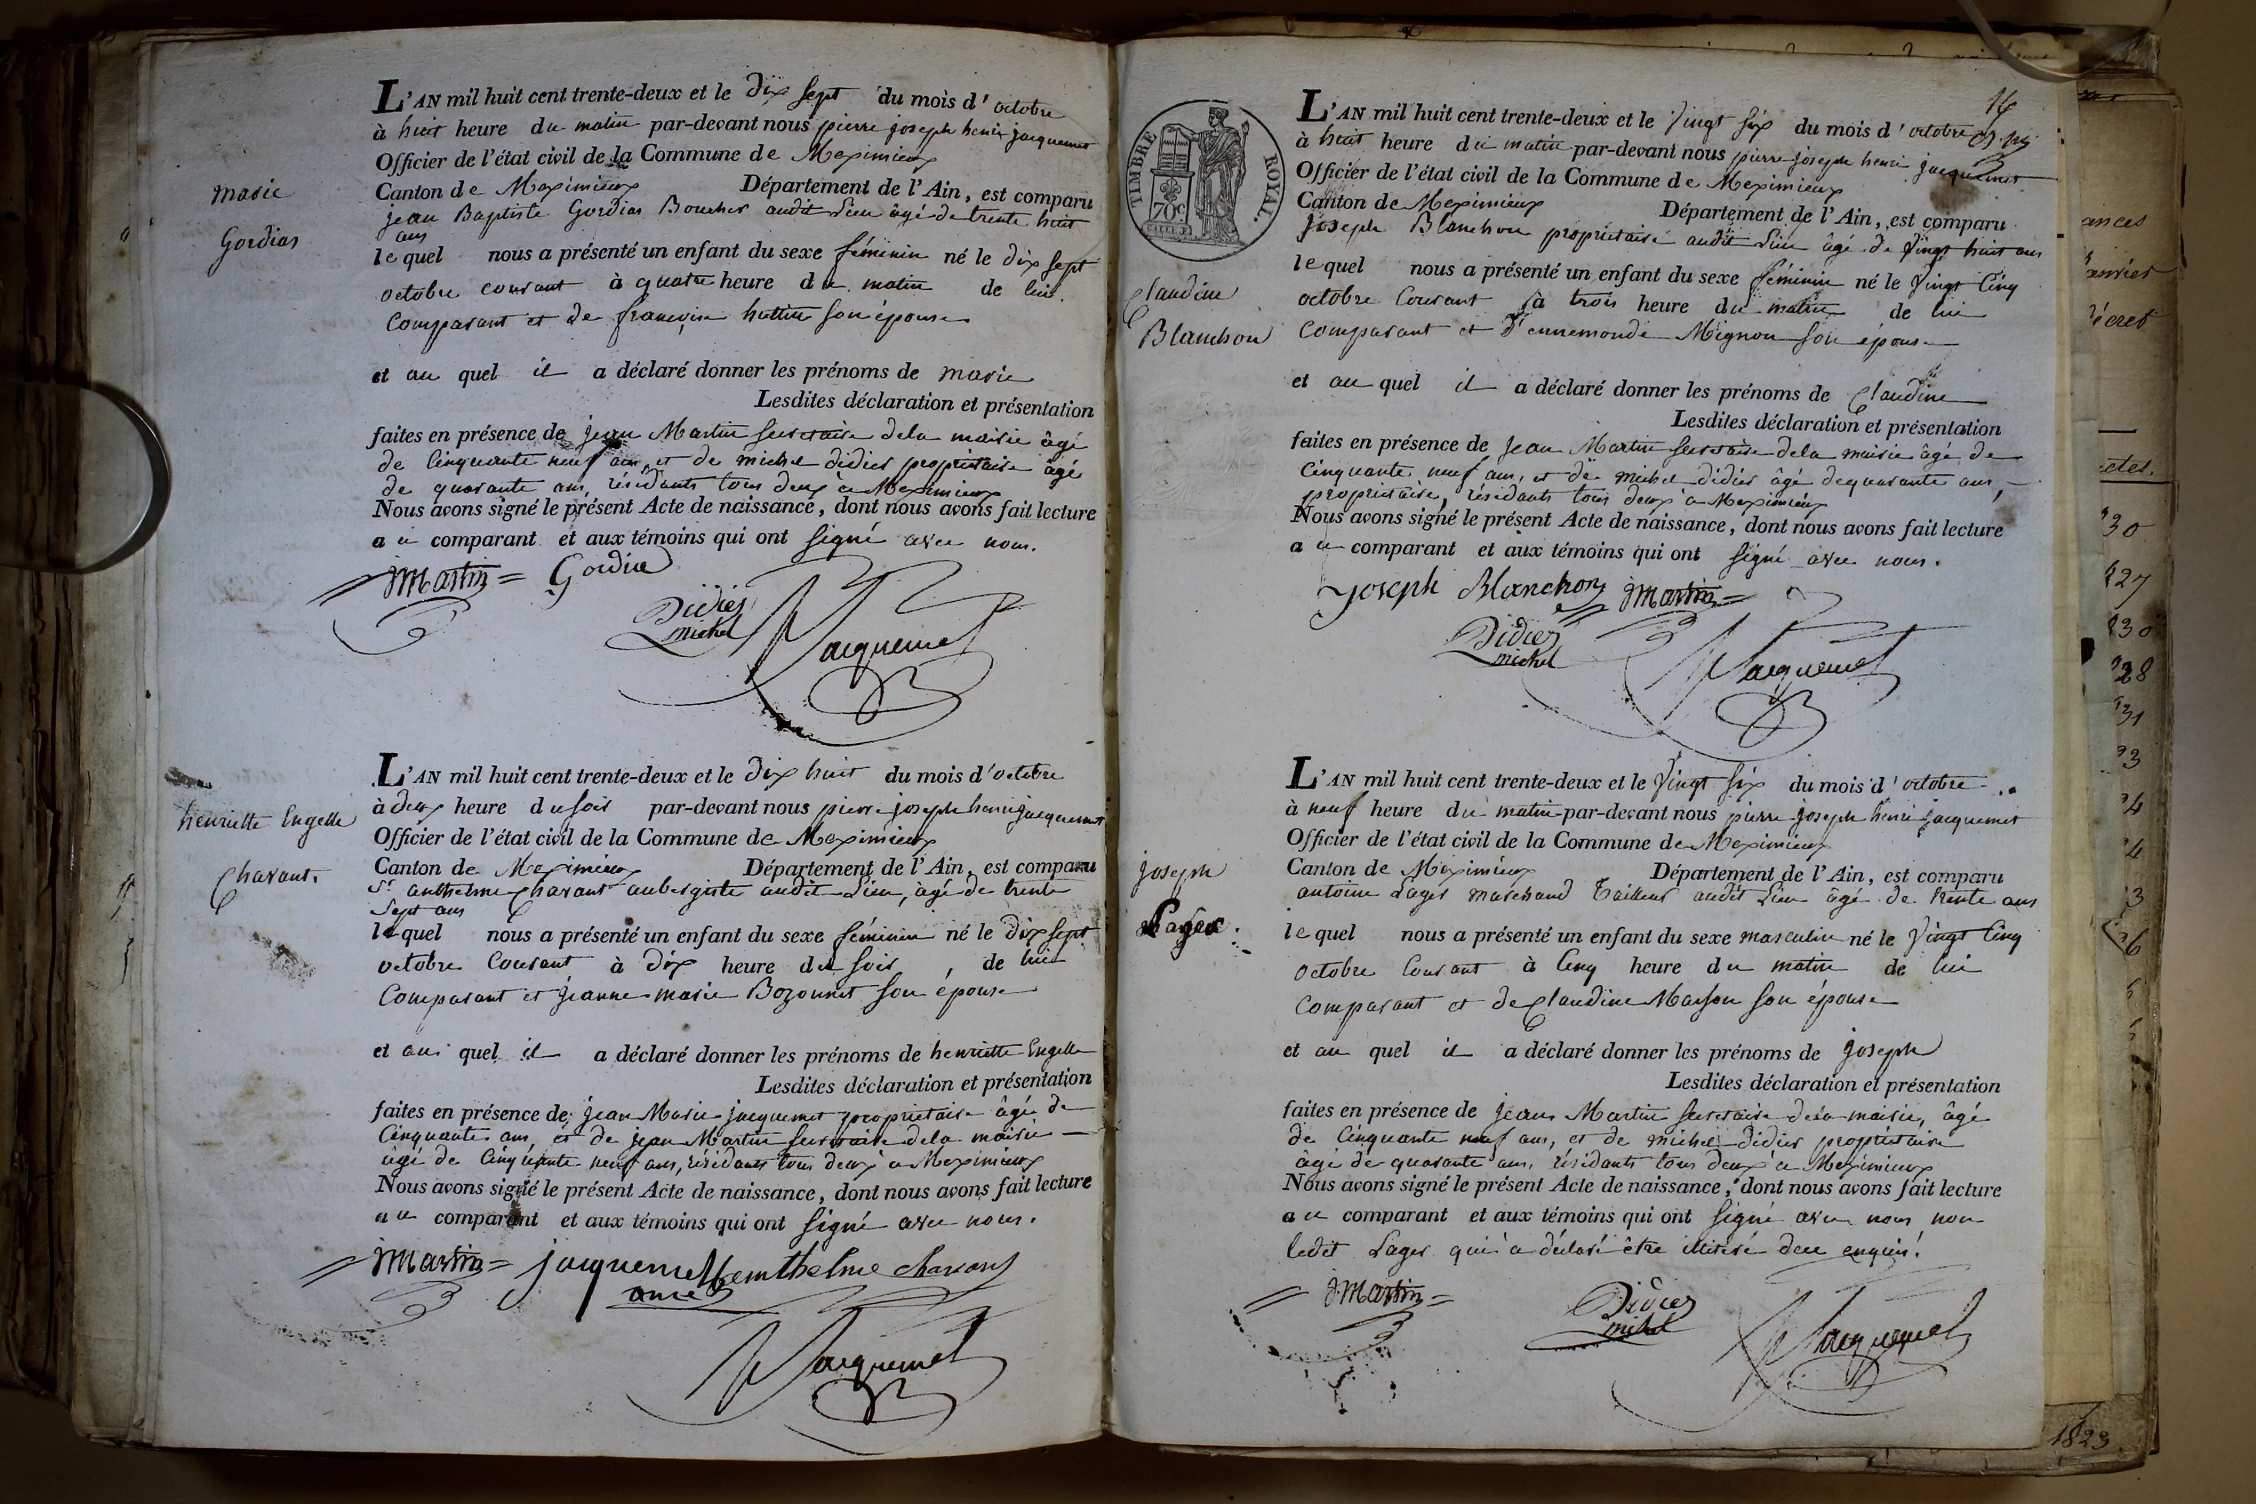 marie
Gordias
L'AN mil huit cent trente-deux et le Dix sept du mois d'octobre
à huit heure du matin par-devant nous pierre joseph henri jacquemet
Officier de l'état civil de la Commune de Meximieux
Canton de Meximieux Département de l'Ain, est comparu
jean Baptiste Gordias Boucher audit Lieu âgé de trente huit
ans
lequel nous a présenté un enfant du sexe féminin né le dix sept
octobre courant à quatre heure du matin de lui
Comparant et de françoise huttin son épouse
et au quel il a déclaré donner les prénoms de marie
Lesdites déclaration et présentation
faites en présence de jean Martin secretaire dela mairie âgé
de Cinquante neuf ans, et de michel didier propriétaire âgé
de quarante ans, résidants tous deux à Meximieux
Nous avons signé le présent Acte de naissance, dont nous avons fait lecture
au comparant et aux témoins qui ont signé avec nous.
JMartin Gordia
Didier
michel
Jacquemet
henriette Engelle
Chavant.
L'AN mil huit cent trente-deux et le Dix huit du mois d'octobre
à deux heure du soir par-devant nous pierre joseph henri jacquemet
Officier de l'état civil de la Commune de Meximieux
Canton de Meximieux Département de l'Ain, est comparu
Sr anthelme Chavant aubergiste audit Lieu, âgé de trente
Sept ans
lequel nous a présenté un enfant du sexe féminin né le Dix sept
octobre Courant à Dix heure du soir, de lui
Comparant et jeanne marie Bozonnet son épouse
et au quel il a déclaré donner les prénoms de henriette Engelle
Lesdites déclaration et présentation
faites en présence de jean Marie jacquemet propriétaire âgé de
Cinquante ans, et de jean Martin secretaire dela mairie
âgé de Cinquante neuf ans, résidants tous deux à Meximieux
Nous avons signé le présent Acte de naissance, dont nous avons fait lecture
au comparant et aux témoins qui ont signé avec nous.
JMartin jacquemet anthelme chavant
ainé
Jacquemet
16
TIMBRE ROYAL.
70c
Claudine
Blanchon
L'AN mil huit cent trente-deux et le Vingt six du mois d'octobre
à huit heure du matin par-devant nous pierre joseph henri jacquemet
Officier de l'état civil de la Commune de Meximieux
Canton de Meximieux Département de l'Ain, est comparu
Joseph Blanchon propriétaire audit Lieu âgé de Vingt huit ans
lequel nous a présenté un enfant du sexe féminin né le Vingt Cinq
octobre Courant à trois heure du matin de lui
Comparant et d'ennemonde Mignon son épouse
et au quel il a déclaré donner les prénoms de Claudine
Lesdites déclaration et présentation
faites en présence de Jean Martin secretaire dela mairie âgé de
Cinquante neuf ans, et de michel didier âgé dequarante ans,
propriétaire, résidants tous deux à Meximieux
Nous avons signé le présent Acte de naissance, dont nous avons fait lecture
au comparant et aux témoins qui ont signé avec nous.
Joseph Blanchon JMartin
Didier
michel
Jacquemet
joseph
Lager.
L'AN mil huit cent trente-deux et le Vingt six du mois d'octobre
à neuf heure du matin par-devant nous pierre joseph henri jacquemet
Officier de l'état civil de la Commune de Meximieux
Canton de Meximieux Département de l'Ain, est comparu
antoine Lager marchand Tailleur audit Lieu âgé de trente ans
lequel nous a présenté un enfant du sexe masculin né le Vingt Cinq
octobre Courant à Cinq heure du matin de lui
Comparant et de Claudine Masson son épouse
et au quel il a déclaré donner les prénoms de joseph
Lesdites déclaration et présentation
faites en présence de jean Martin secretaire dela mairie, âgé
de Cinquante neuf ans, et de michel didier propriétaire
âgé de quarante ans, résidants tous deux à Meximieux
Nous avons signé le présent Acte de naissance, dont nous avons fait lecture
au comparant et aux témoins qui ont signé avec nous non
ledit Lager qui a déclaré être illitéré dece enquis.
JMartin
Didier
michel
Jacquemet
ances
30
27
30
28
31
1823